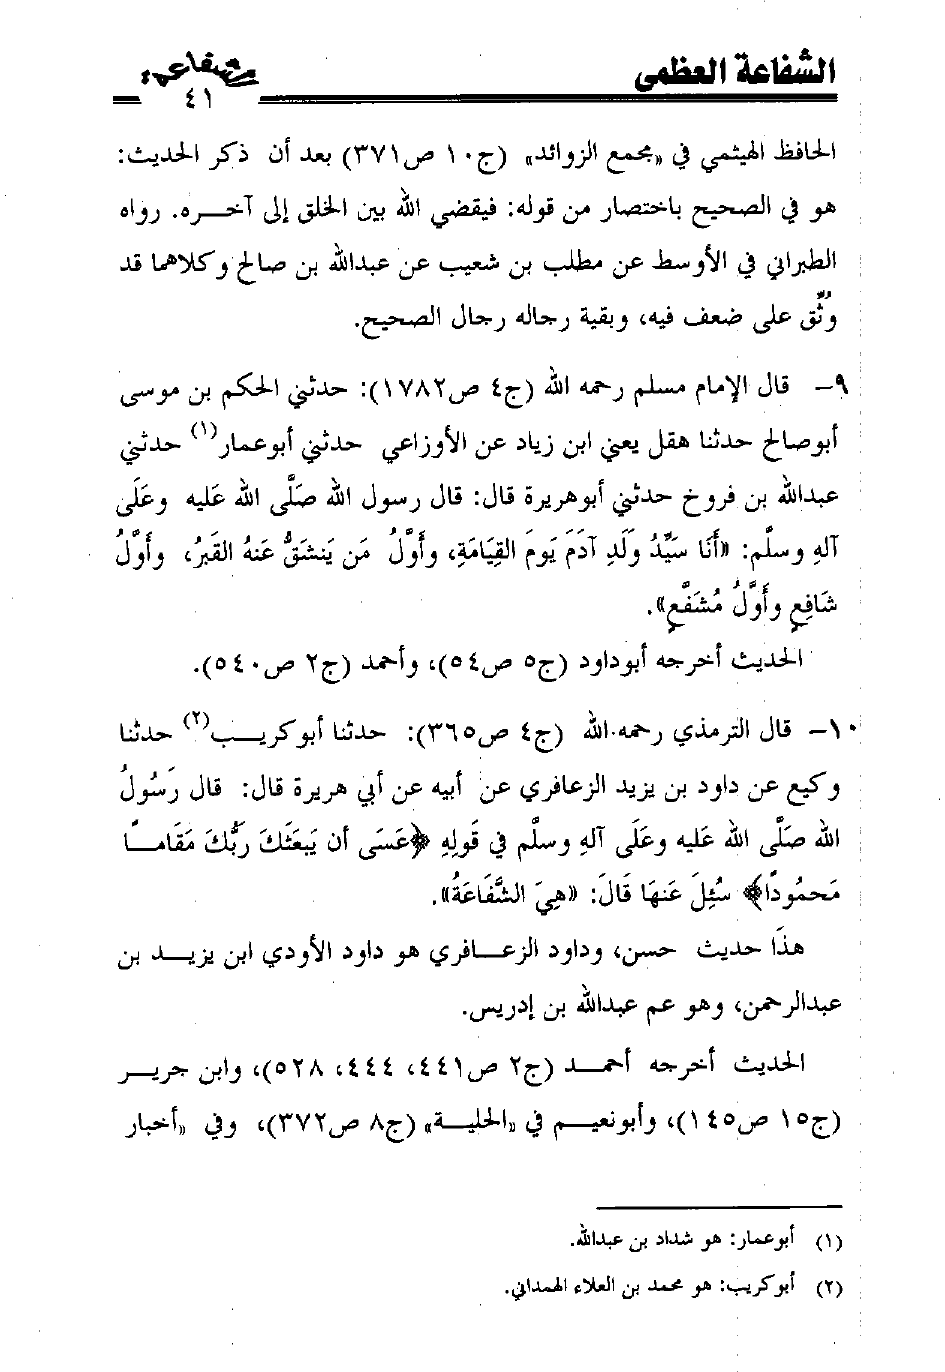 الشفاعة العظمى
٤١
الحافظ الهيثمي في «مجمع الزوائد» (ج١٠ ص٣٧١) بعد أن ذكر الحديث:
هو في الصحيح باختصار من قوله: فيقضي الله بين الخلق إلى آخره. رواه
الطبراني في الأوسط عن مطلب بن شعيب عن عبدالله بن صالح وكلاهما قد
وُثّق على ضعف فيه، وبقية رجاله رجال الصحيح.
٩- قال الإمام مسلم رحمه الله (ج٤ ص١٧٨٢): حدثني الحكم بن موسى
أبوصالح حدثنا هقل يعني ابن زياد عن الأوزاعي حدثني أبوعمار(١) حدثني
عبدالله بن فروخ حدثني أبوهريرة قال: قال رسول الله صَلَّى الله عَليه وعَلَى
آلهِ وسلَّم: «أَنَا سَيِّدُ وَلَدِ آدَمَ يَومَ القِيَامَةِ، وأَوَّلُ مَن يَنشَقُّ عَنهُ القَبرُ، وأَوَّلُ
شَافِعٍ وأَوَّلُ مُشَفَّعٍ».
الحديث أخرجه أبوداود (ج٥ ص٥٤)، وأحمد (ج٢ ص٥٤٠).
١٠- قال الترمذي رحمه الله (ج٤ ص٣٦٥): حدثنا أبوكريب(٢) حدثنا
وكيع عن داود بن يزيد الزعافري عن أبيه عن أبي هريرة قال: قال رَسُولُ
الله صَلَّى الله عَليه وعَلَى آلهِ وسلَّم في قَولِهِ ﴿عَسَى أن يَبعَثَكَ رَبُّكَ مَقَامـًا
مَحمُودًا﴾ سُئِلَ عَنهَا قَالَ: «هِيَ الشَّفَاعَةُ».
هذَا حديث حسن، وداود الزعافري هو داود الأودي ابن يزيد بن
عبدالرحمن، وهو عم عبدالله بن إدريس.
الحديث أخرجه أحمد (ج٢ ص٤٤١، ٤٤٤، ٥٢٨)، وابن جرير
(ج١٥ ص١٤٥)، وأبونعيم في «الحلية» (ج٨ ص٣٧٢)، وفي «أخبار
(١) أبوعمار: هو شداد بن عبدالله.
(٢) أبوكريب: هو محمد بن العلاء الهمداني.